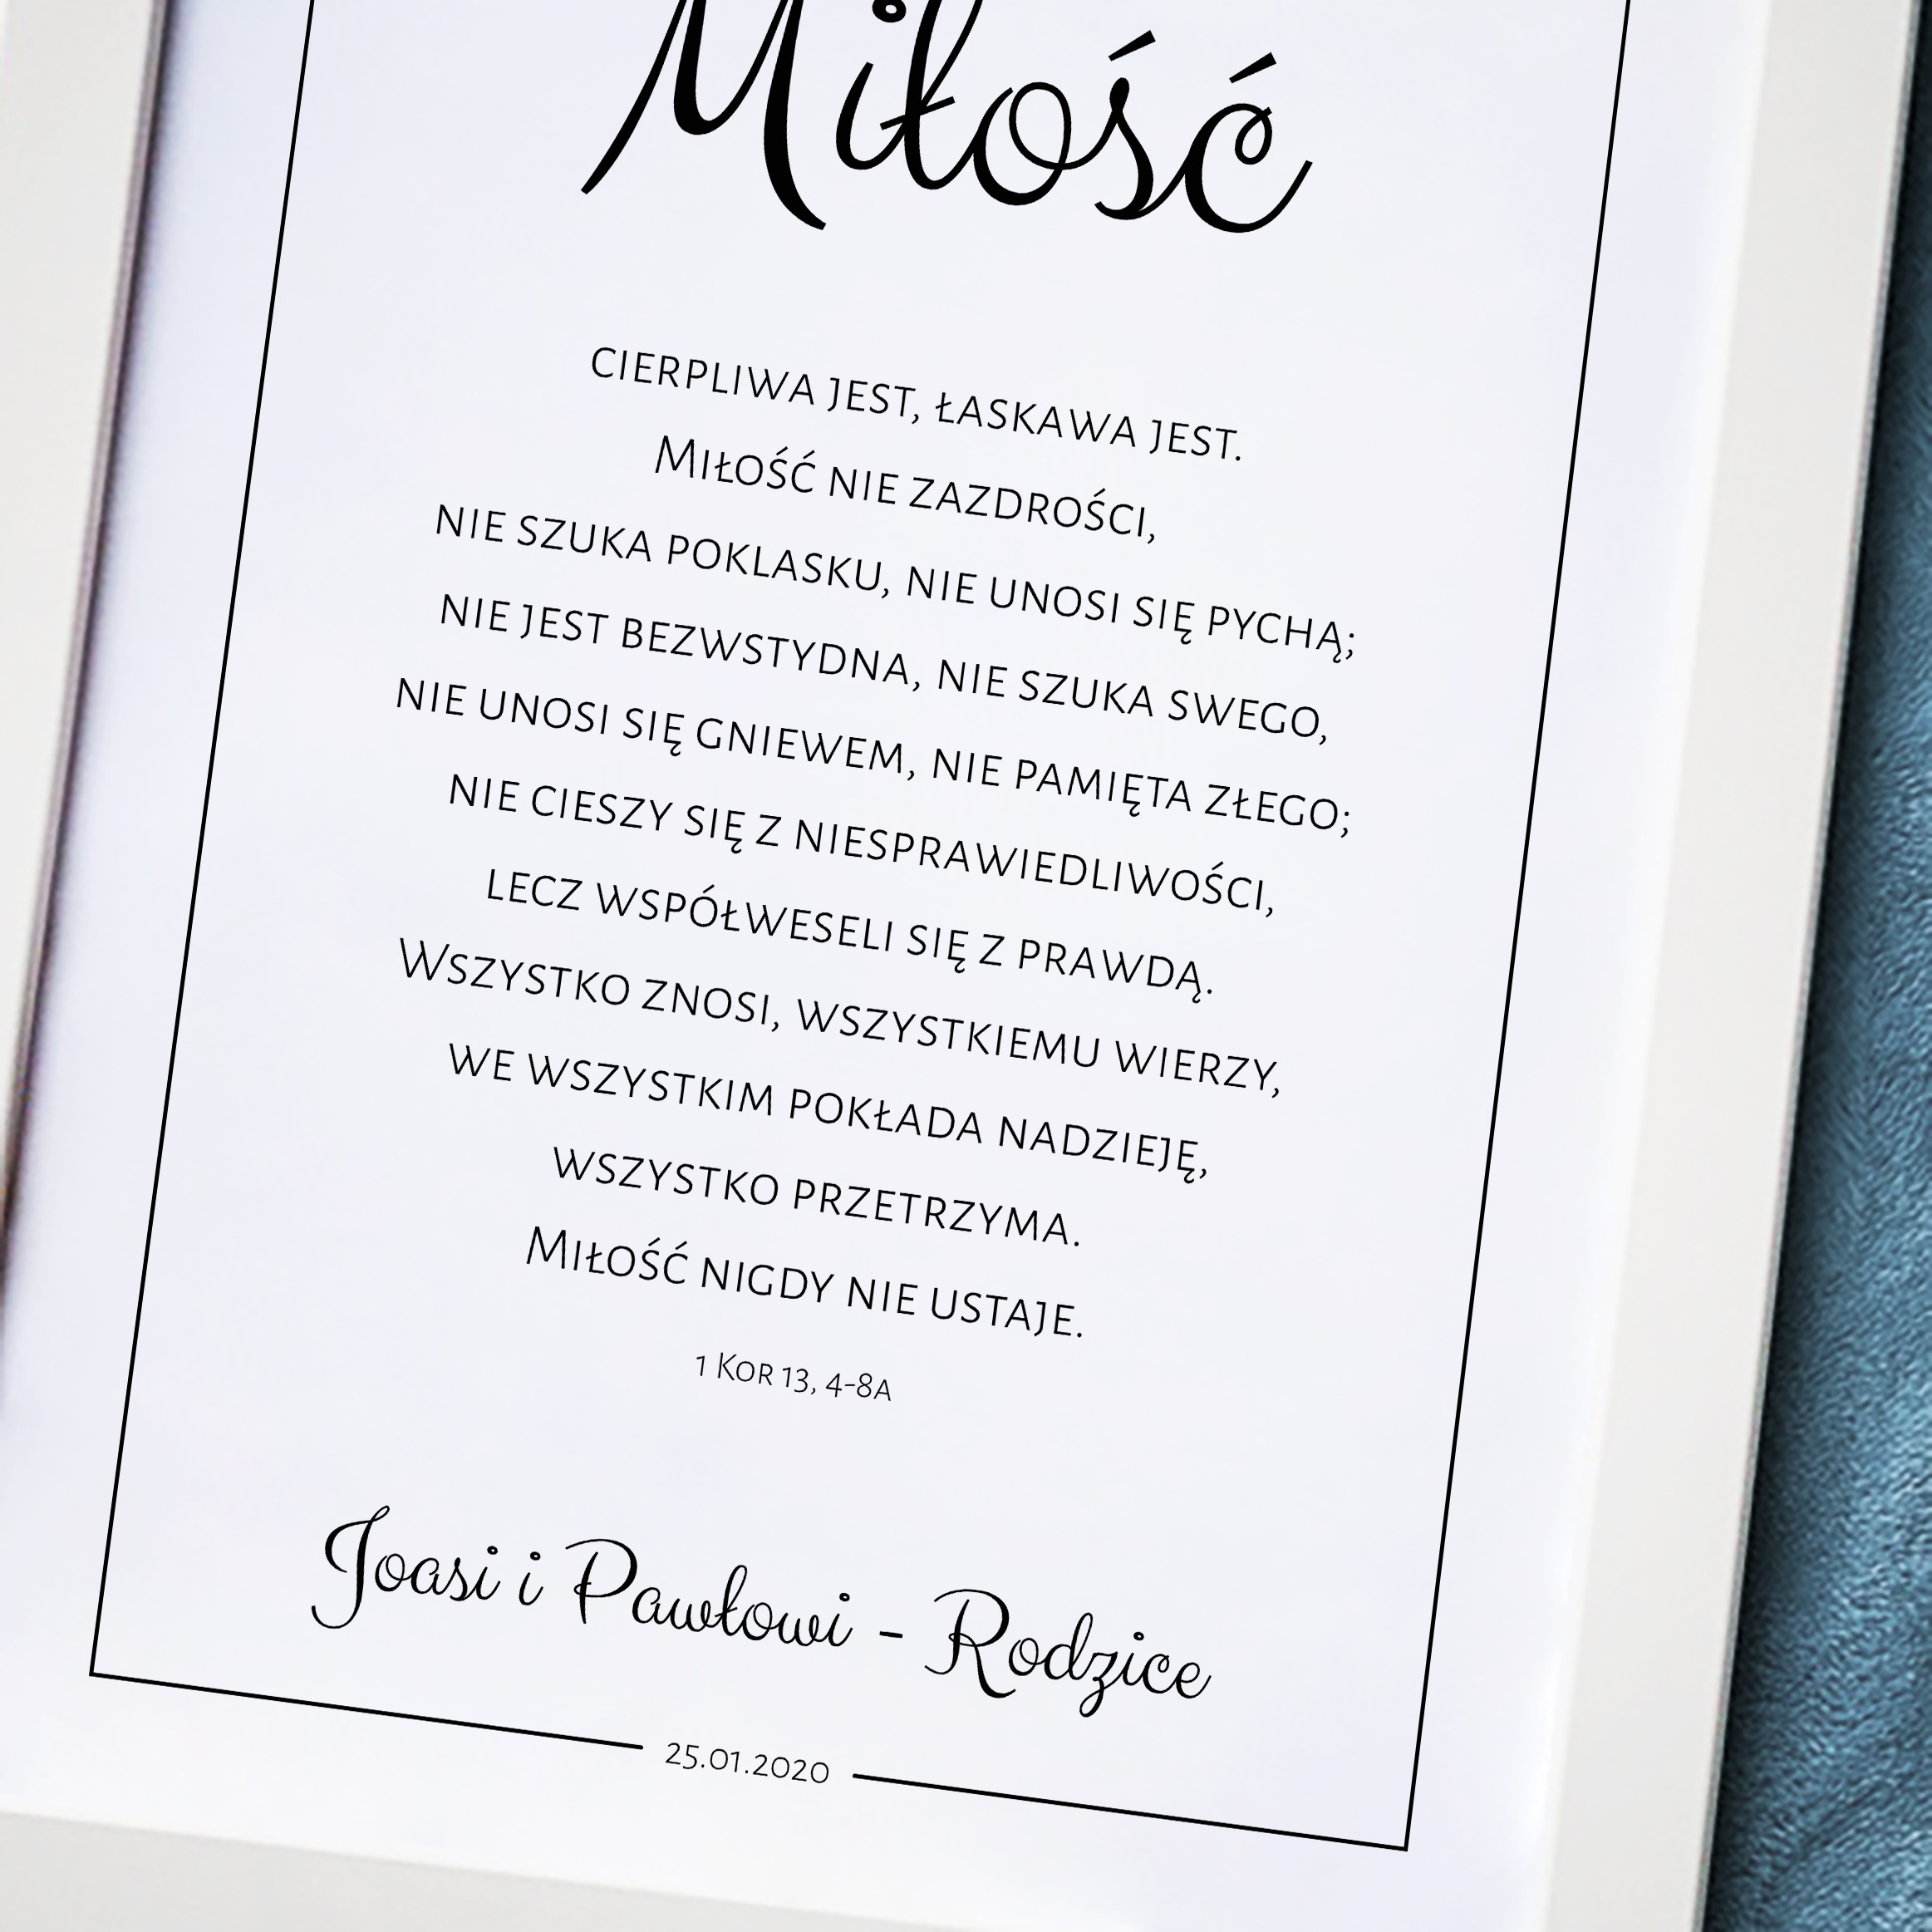 Miłość
cierpliwa jest, łaskawa jest.
Miłość nie zazdrości,
nie szuka poklasku, nie unosi się pychą;
nie jest bezwstydna, nie szuka swego,
nie unosi się gniewem, nie pamięta złego;
nie cieszy się z niesprawiedliwości,
lecz współweseli się z prawdą.
Wszystko znosi, wszystkiemu wierzy,
we wszystkim pokłada nadzieję,
wszystko przetrzyma.
Miłość nigdy nie ustaje.
1 Kor 13, 4-8a
Joasi i Pawłowi - Rodzice
25.01.2020